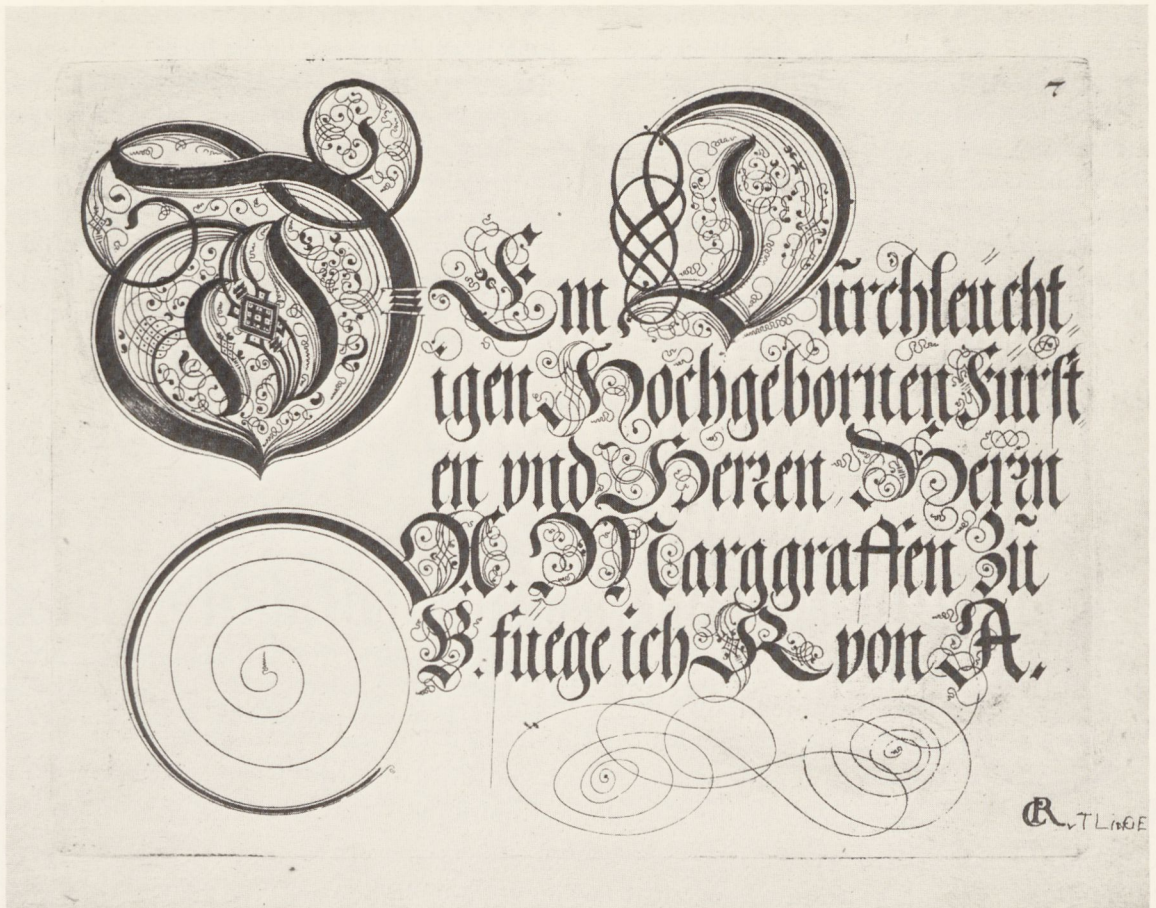 7
DEm Dürchleücht
igen Hochgebornen Fürst
en vnd Herren Herrn
N. Marggraffen Zü
B. füege ich K von A.